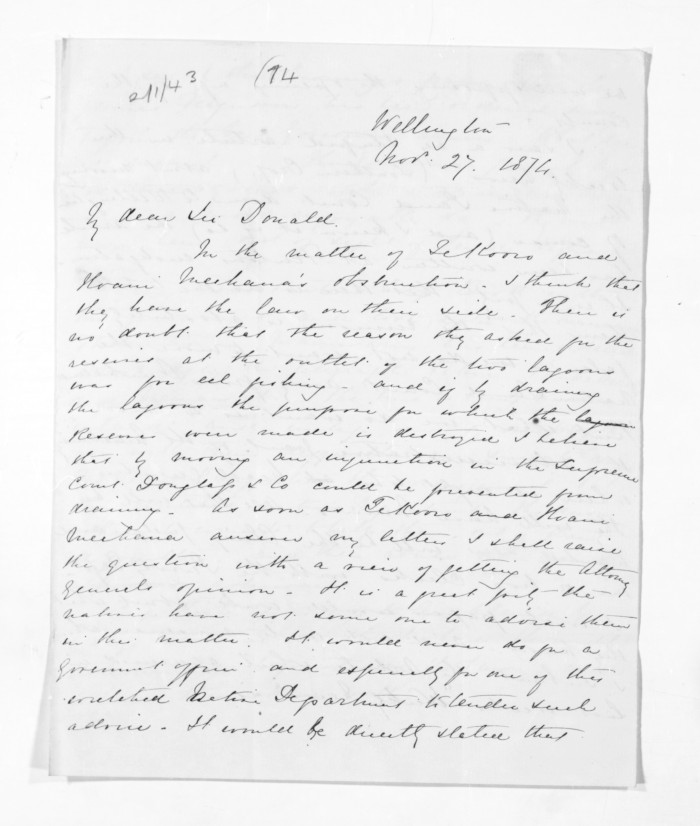 2/1/43 (94
Wellington
Nov. 27. 1874.
My dear Sir Donald.
In the matter of Te Kooro and
Hoani Meehana's obstruction. I think that
they have the law on their side. There is
no doubt that the reason they asked for the
reserves at the outlet of the two lagoons
was for eel fishing - and if by draining
the lagoons the purpose for which the lagoon
Reserves were made is destroyed I believe
that by moving an injunction in the Supreme
Court Douglass & Co could be prevented from
draining. As soon as Te Kooro and Hoani
Meehana answer my letters I shall raise
the question with a view of getting the Attorney
Generals opinion. It is a great pity the
natives have not some one to advise them
in the matter. It would never do for a
Government officer and especially for one of this
wretched Native Department to tender such
advice - It would be directly stated that